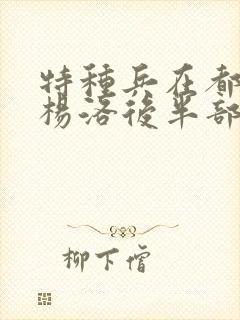 特種兵在都
楊洛後半部
柳下僧